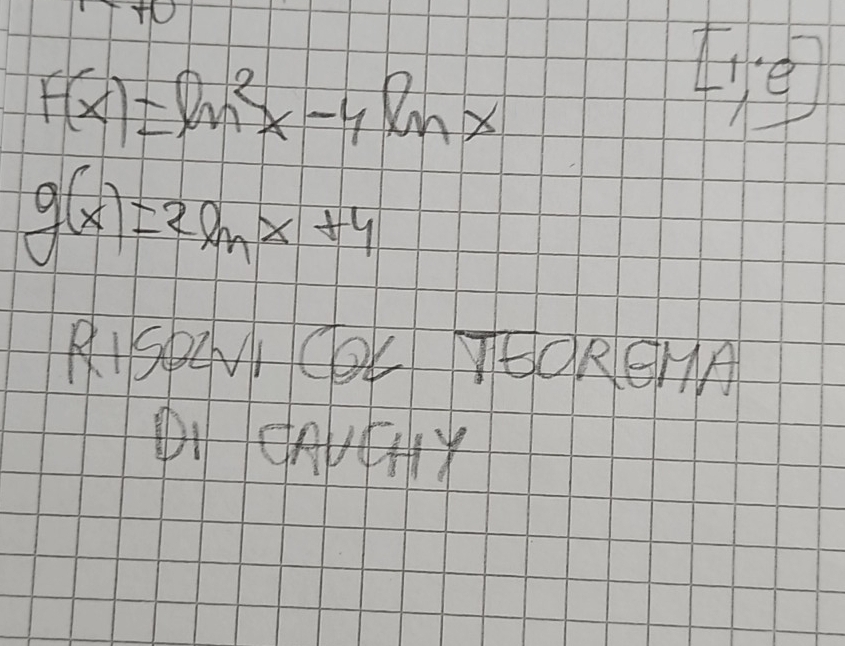 [1;e]
f(x)=ln²x-4lnx
g(x)=2lnx+4
RISOLVI COL TEOREMA
DI CAUCHY